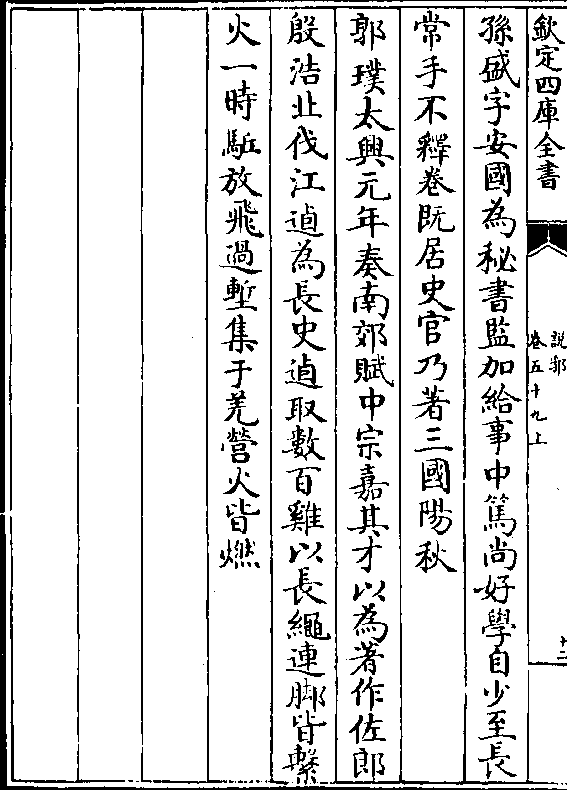 欽定四庫全書
說郛
卷五十九上
十二
孫盛字安國為秘書監加給事中篤尚好學自少至長
常手不釋卷既居史官乃著三國陽秋
郭璞太興元年奏南郊賦中宗嘉其才以為著作佐郎
殷浩北伐江逌為長史逌取數百雞以長繩連脚皆繫
火一時駈放飛過塹集于羌營火皆燃